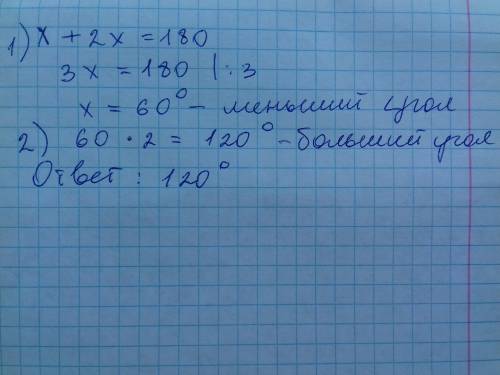 1) x + 2x = 180
3x = 180 | : 3
x = 60° – меньший угол
2) 60 · 2 = 120° – больший угол
Ответ : 120°